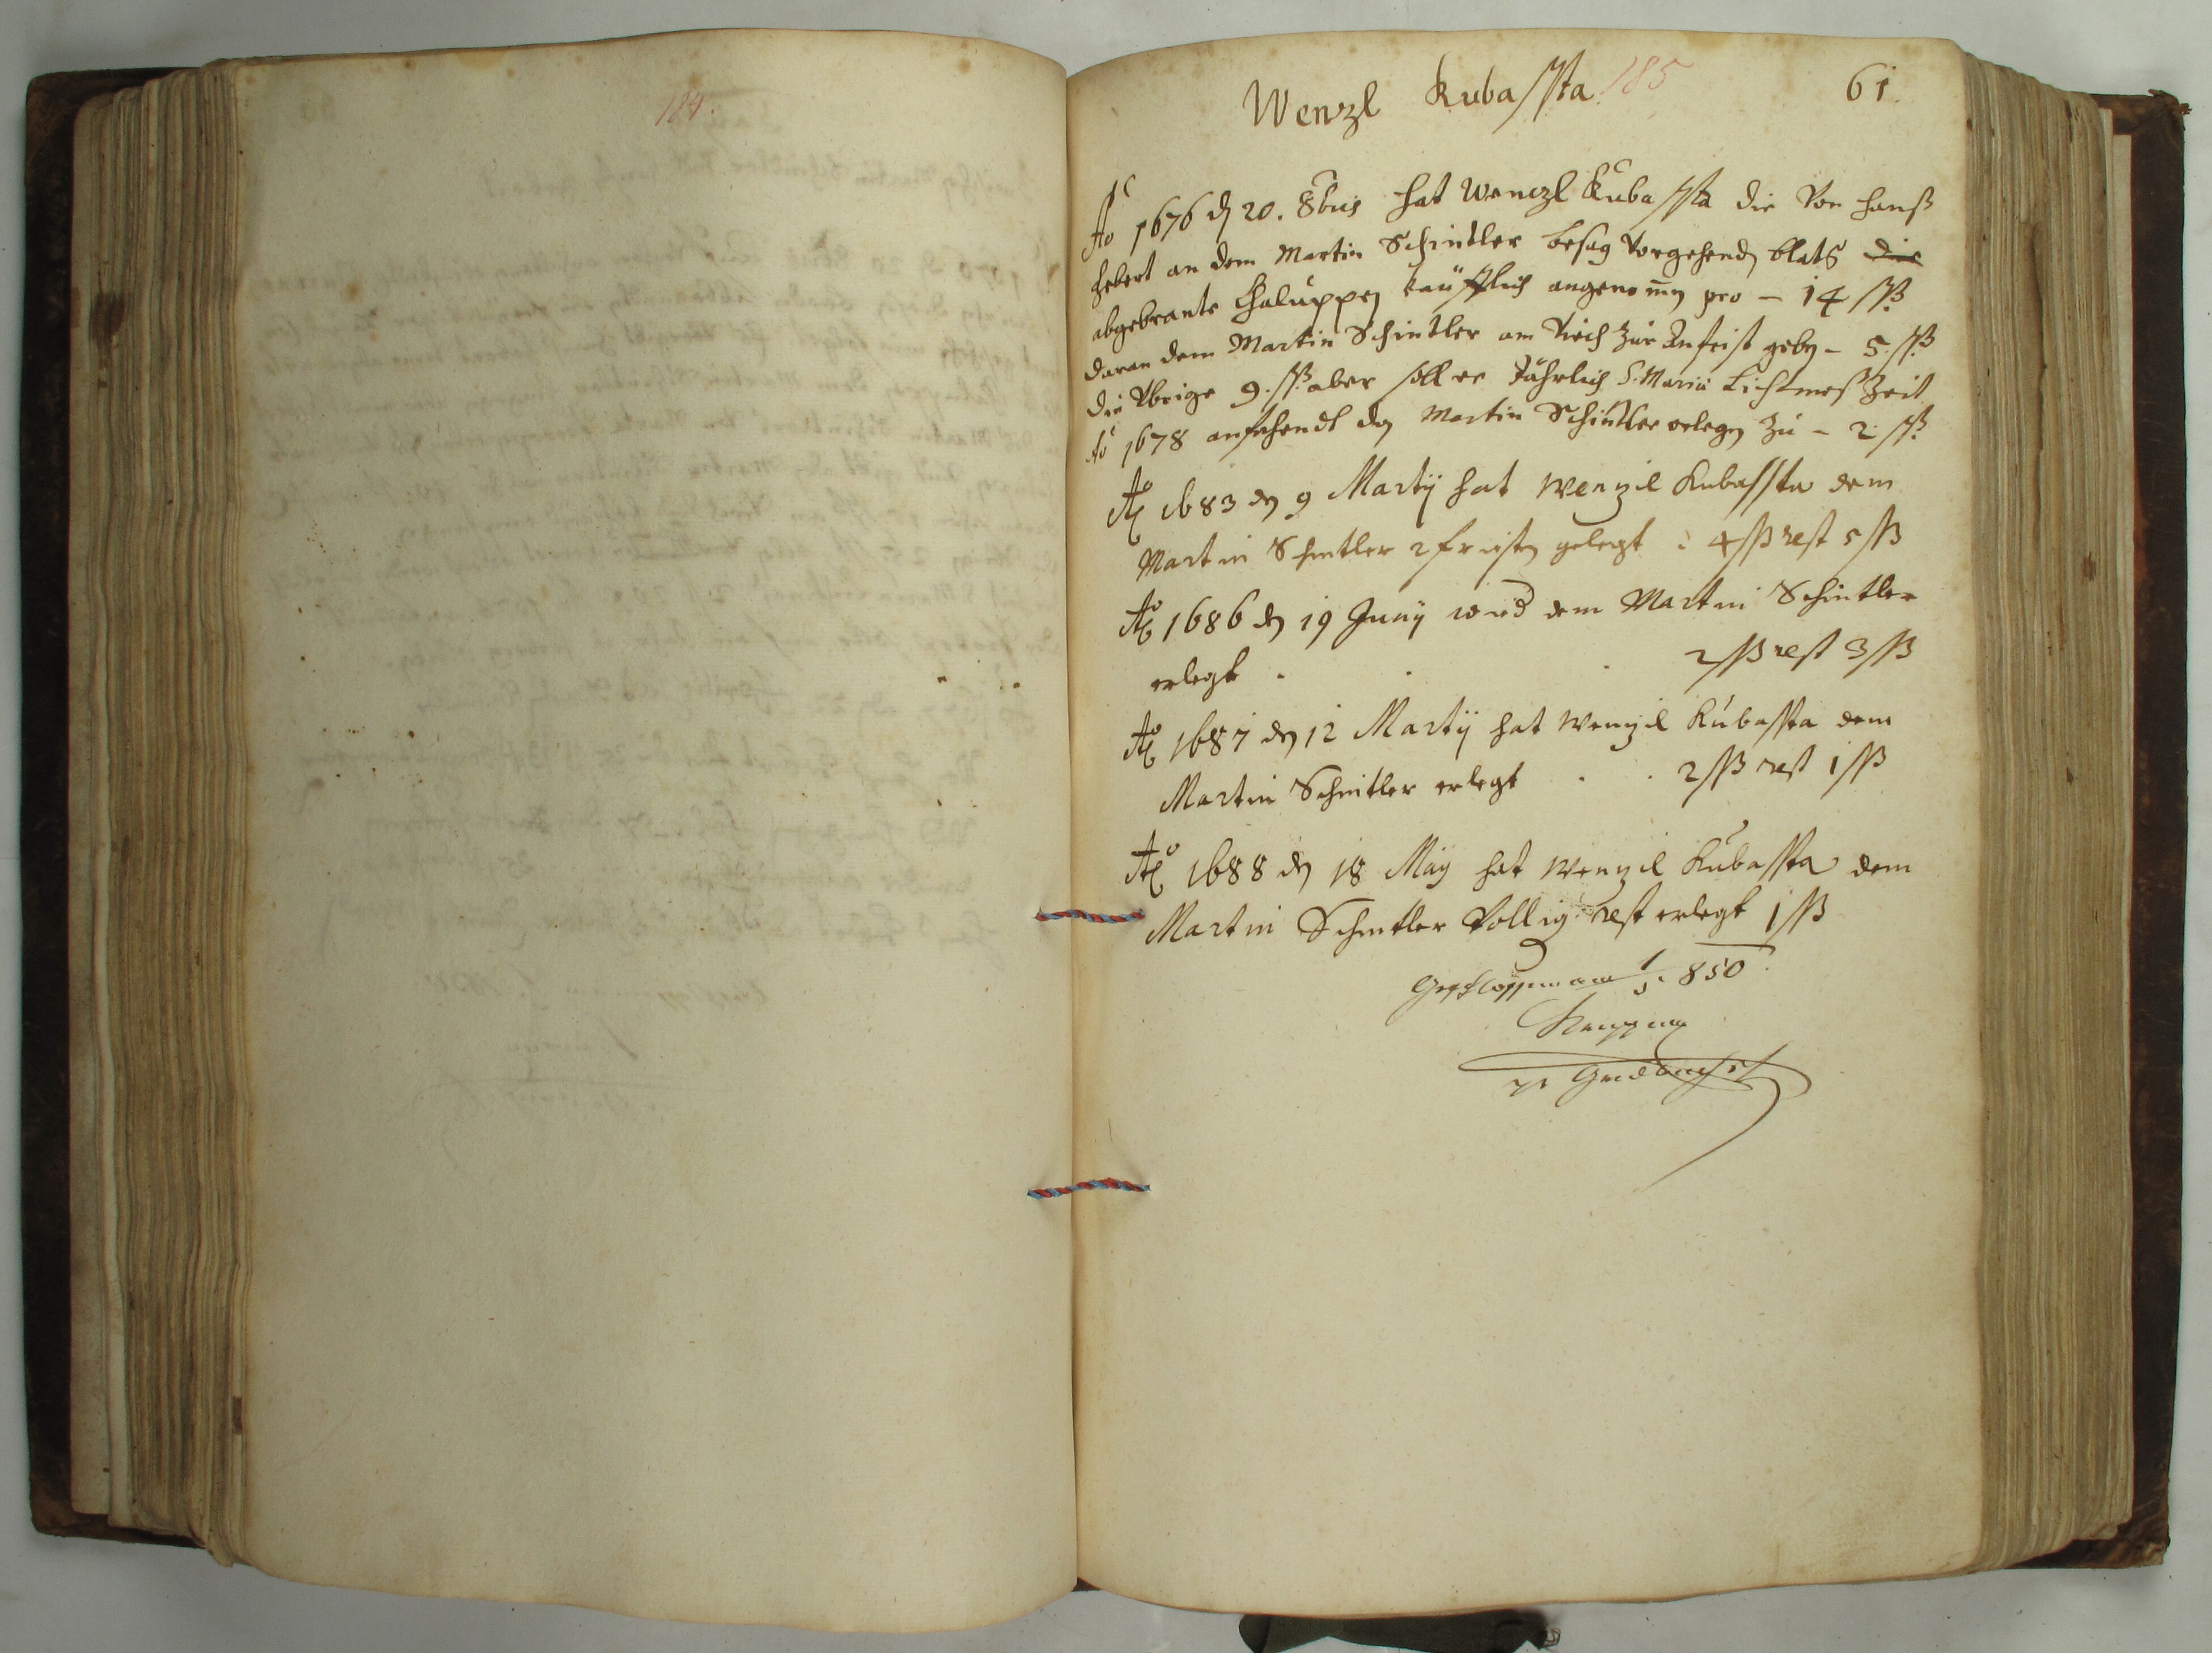 184.
Wenzl Kubassta 185 61.
Ao 1676 dẽ 20. 8bris hat Wenczl Kubassta die Von Hanß
Hebert an dem Martin Schindler besag Vorgehenden blats die
abgebrante Chaluppen kaufflich angenomẽn pro – 14 ßß
daran dem Martin Schindler am Tisch zur Anfrist geben – 5. ßß
die Vbrige 9. ßß aber soll er Jährlich S. Mariä Lichtmeß Zeit
Ao 1678 anfahendt den Martin Schindler erlegen zu – 2 ßß
Ao 1683 den 9 Martÿ hat Wenzil Kubassta dem
Martin Schintler 2 fristen gelegt à 4 ßß rest 5 ßß
Ao 1686 den 19 Junÿ wird dem Martin Schintler
erlegt . . . 2 ßß rest 3 ßß
Ao 1687 den 12 Martÿ hat Wenzil Kubassta dem
Martin Schintler erlegt . . 2 ßß rest 1 ßß
Ao 1688 den 18 Maÿ hat Wenzil Kubassta dem
Martin Schintler Vollig rest erlegt 1 ßß
850